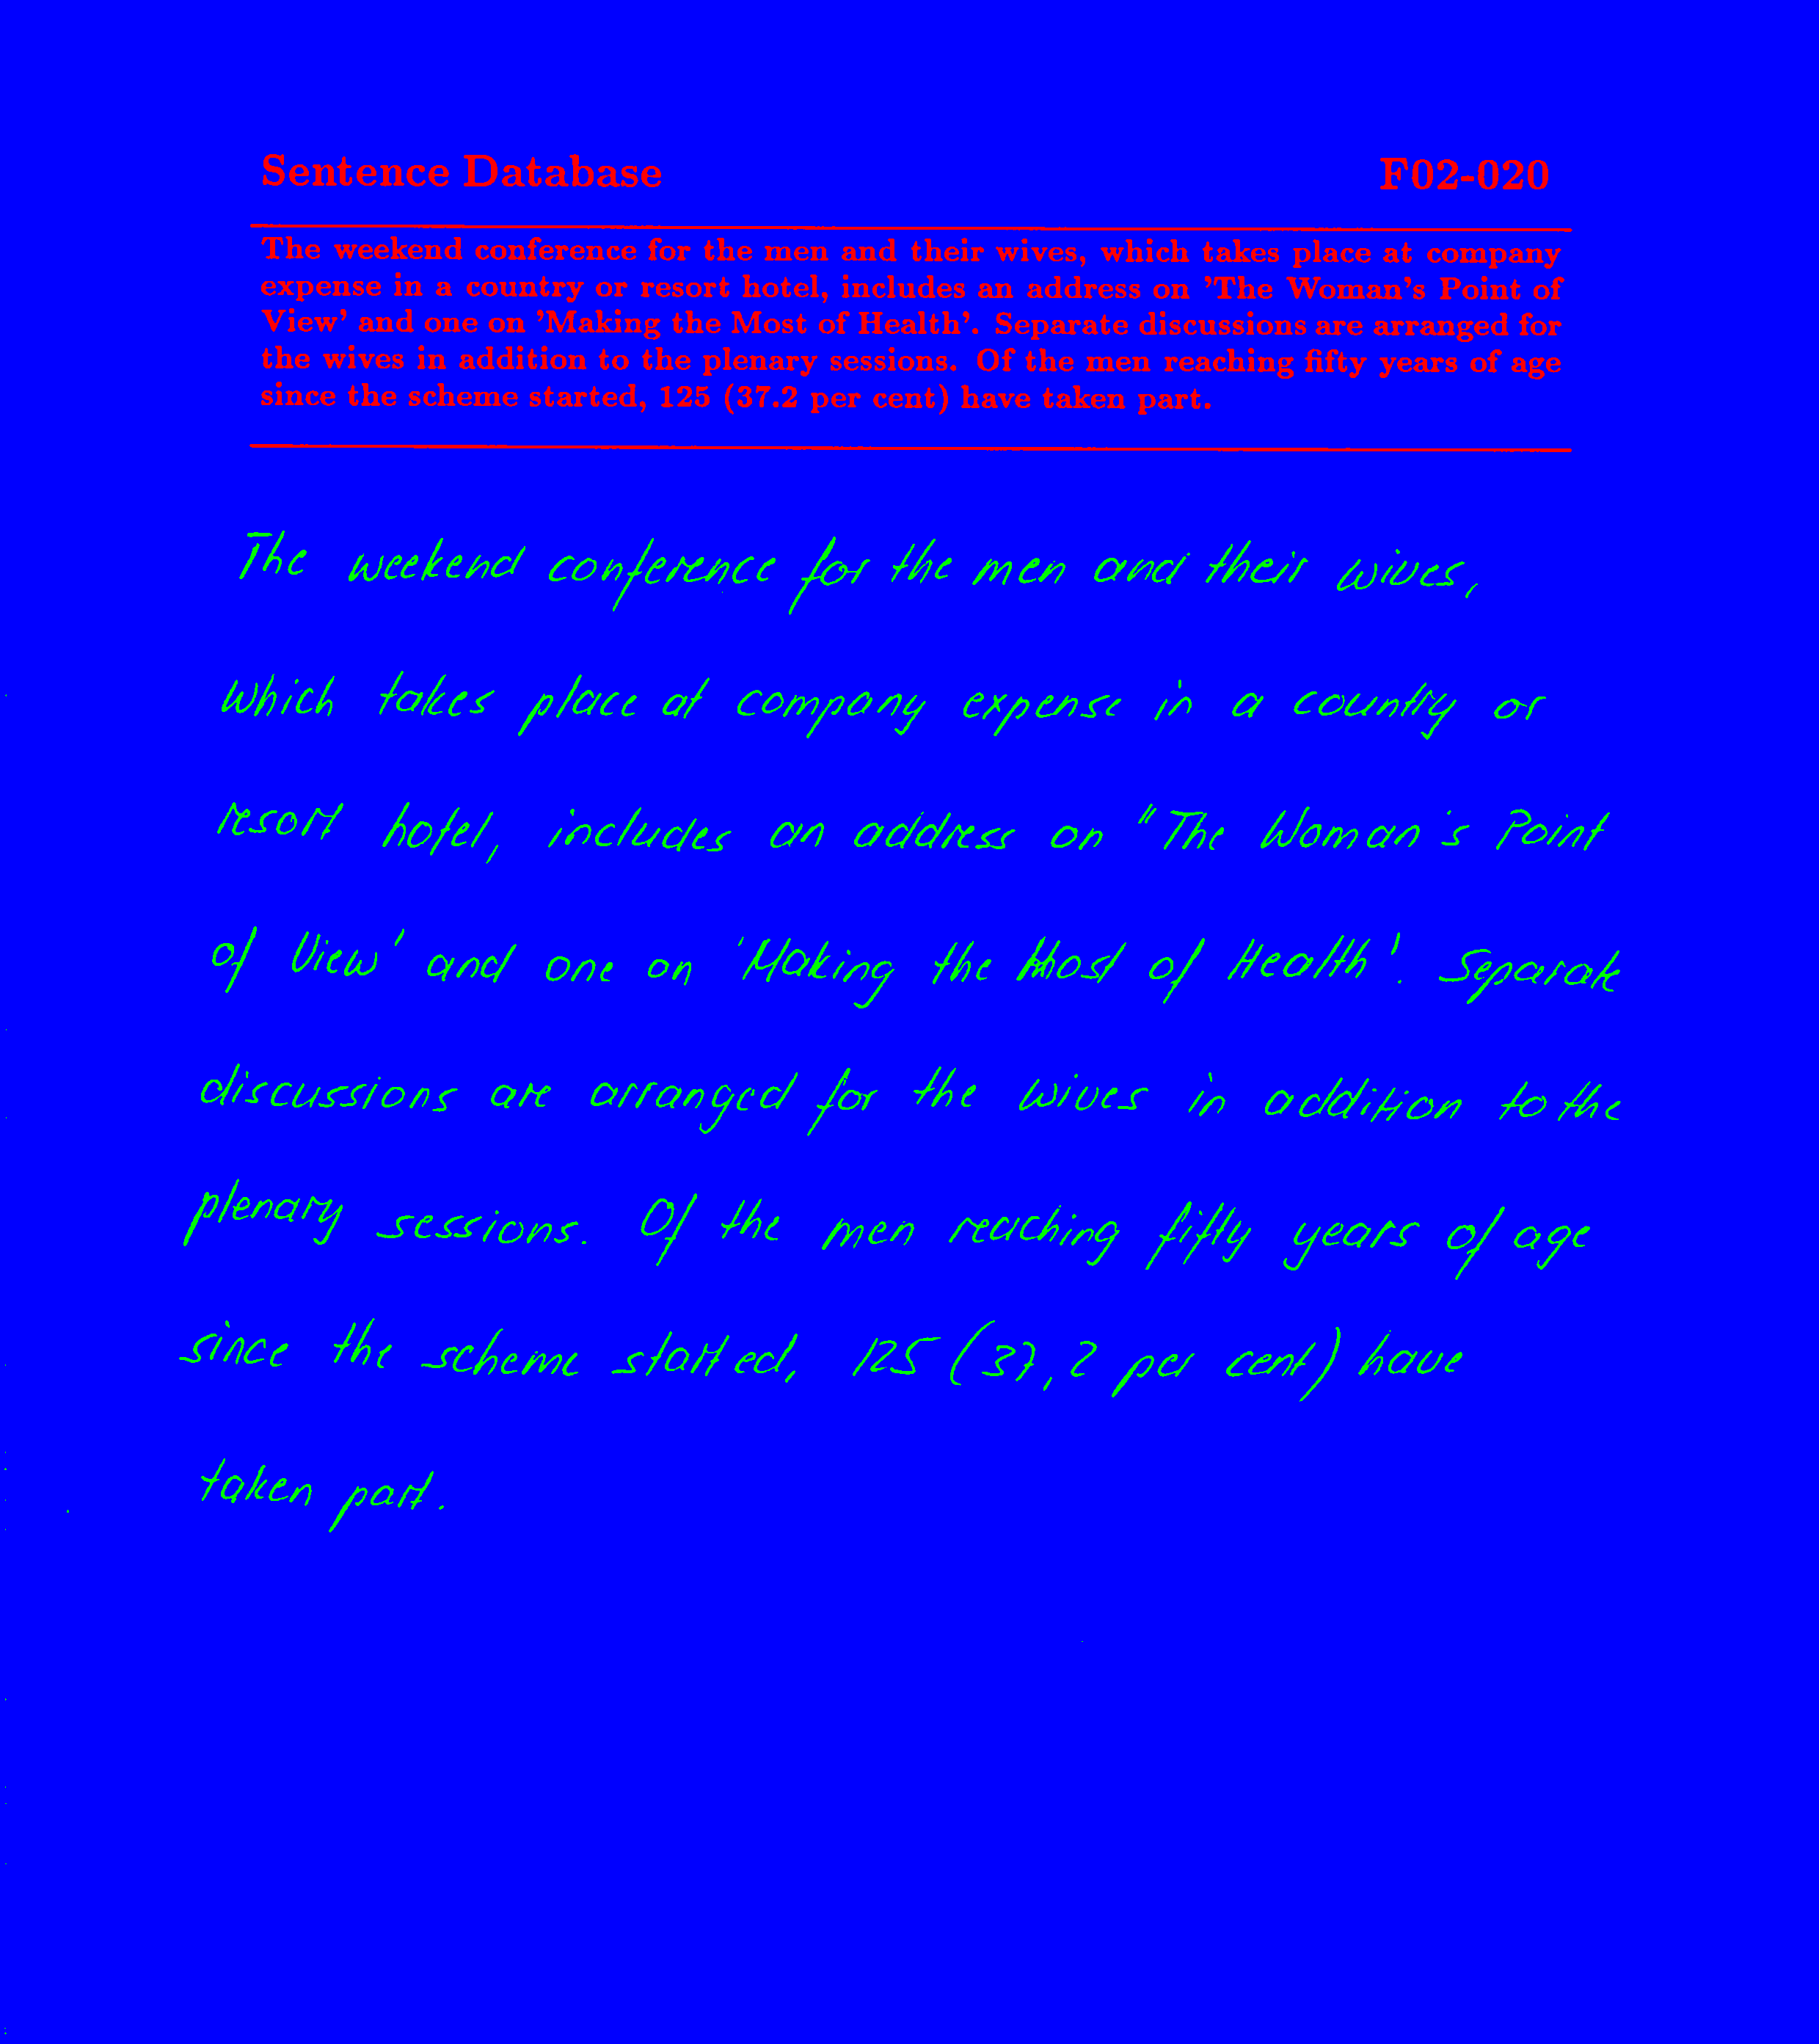 Sentence Database F02-020
The weekend conference for the men and their wives, which takes place at company
expense in a country or resort hotel, includes an address on 'The Woman's Point of
View' and one on 'Making the Most of Health'. Separate discussions are arranged for
the wives in addition to the plenary sessions. Of the men reaching fifty years of age
since the scheme started, 125 (37.2 per cent) have taken part.
The weekend conference for the men and their wives,
which takes place at company expense in a country or
resort hotel, includes an address on "The Woman's Point
of View' and one on 'Making the Most of Health'. Separate
discussions are arranged for the wives in addition to the
plenary sessions. Of the men reaching fifty years of age
since the scheme started, 125 (37,2 per cent) have
taken part.